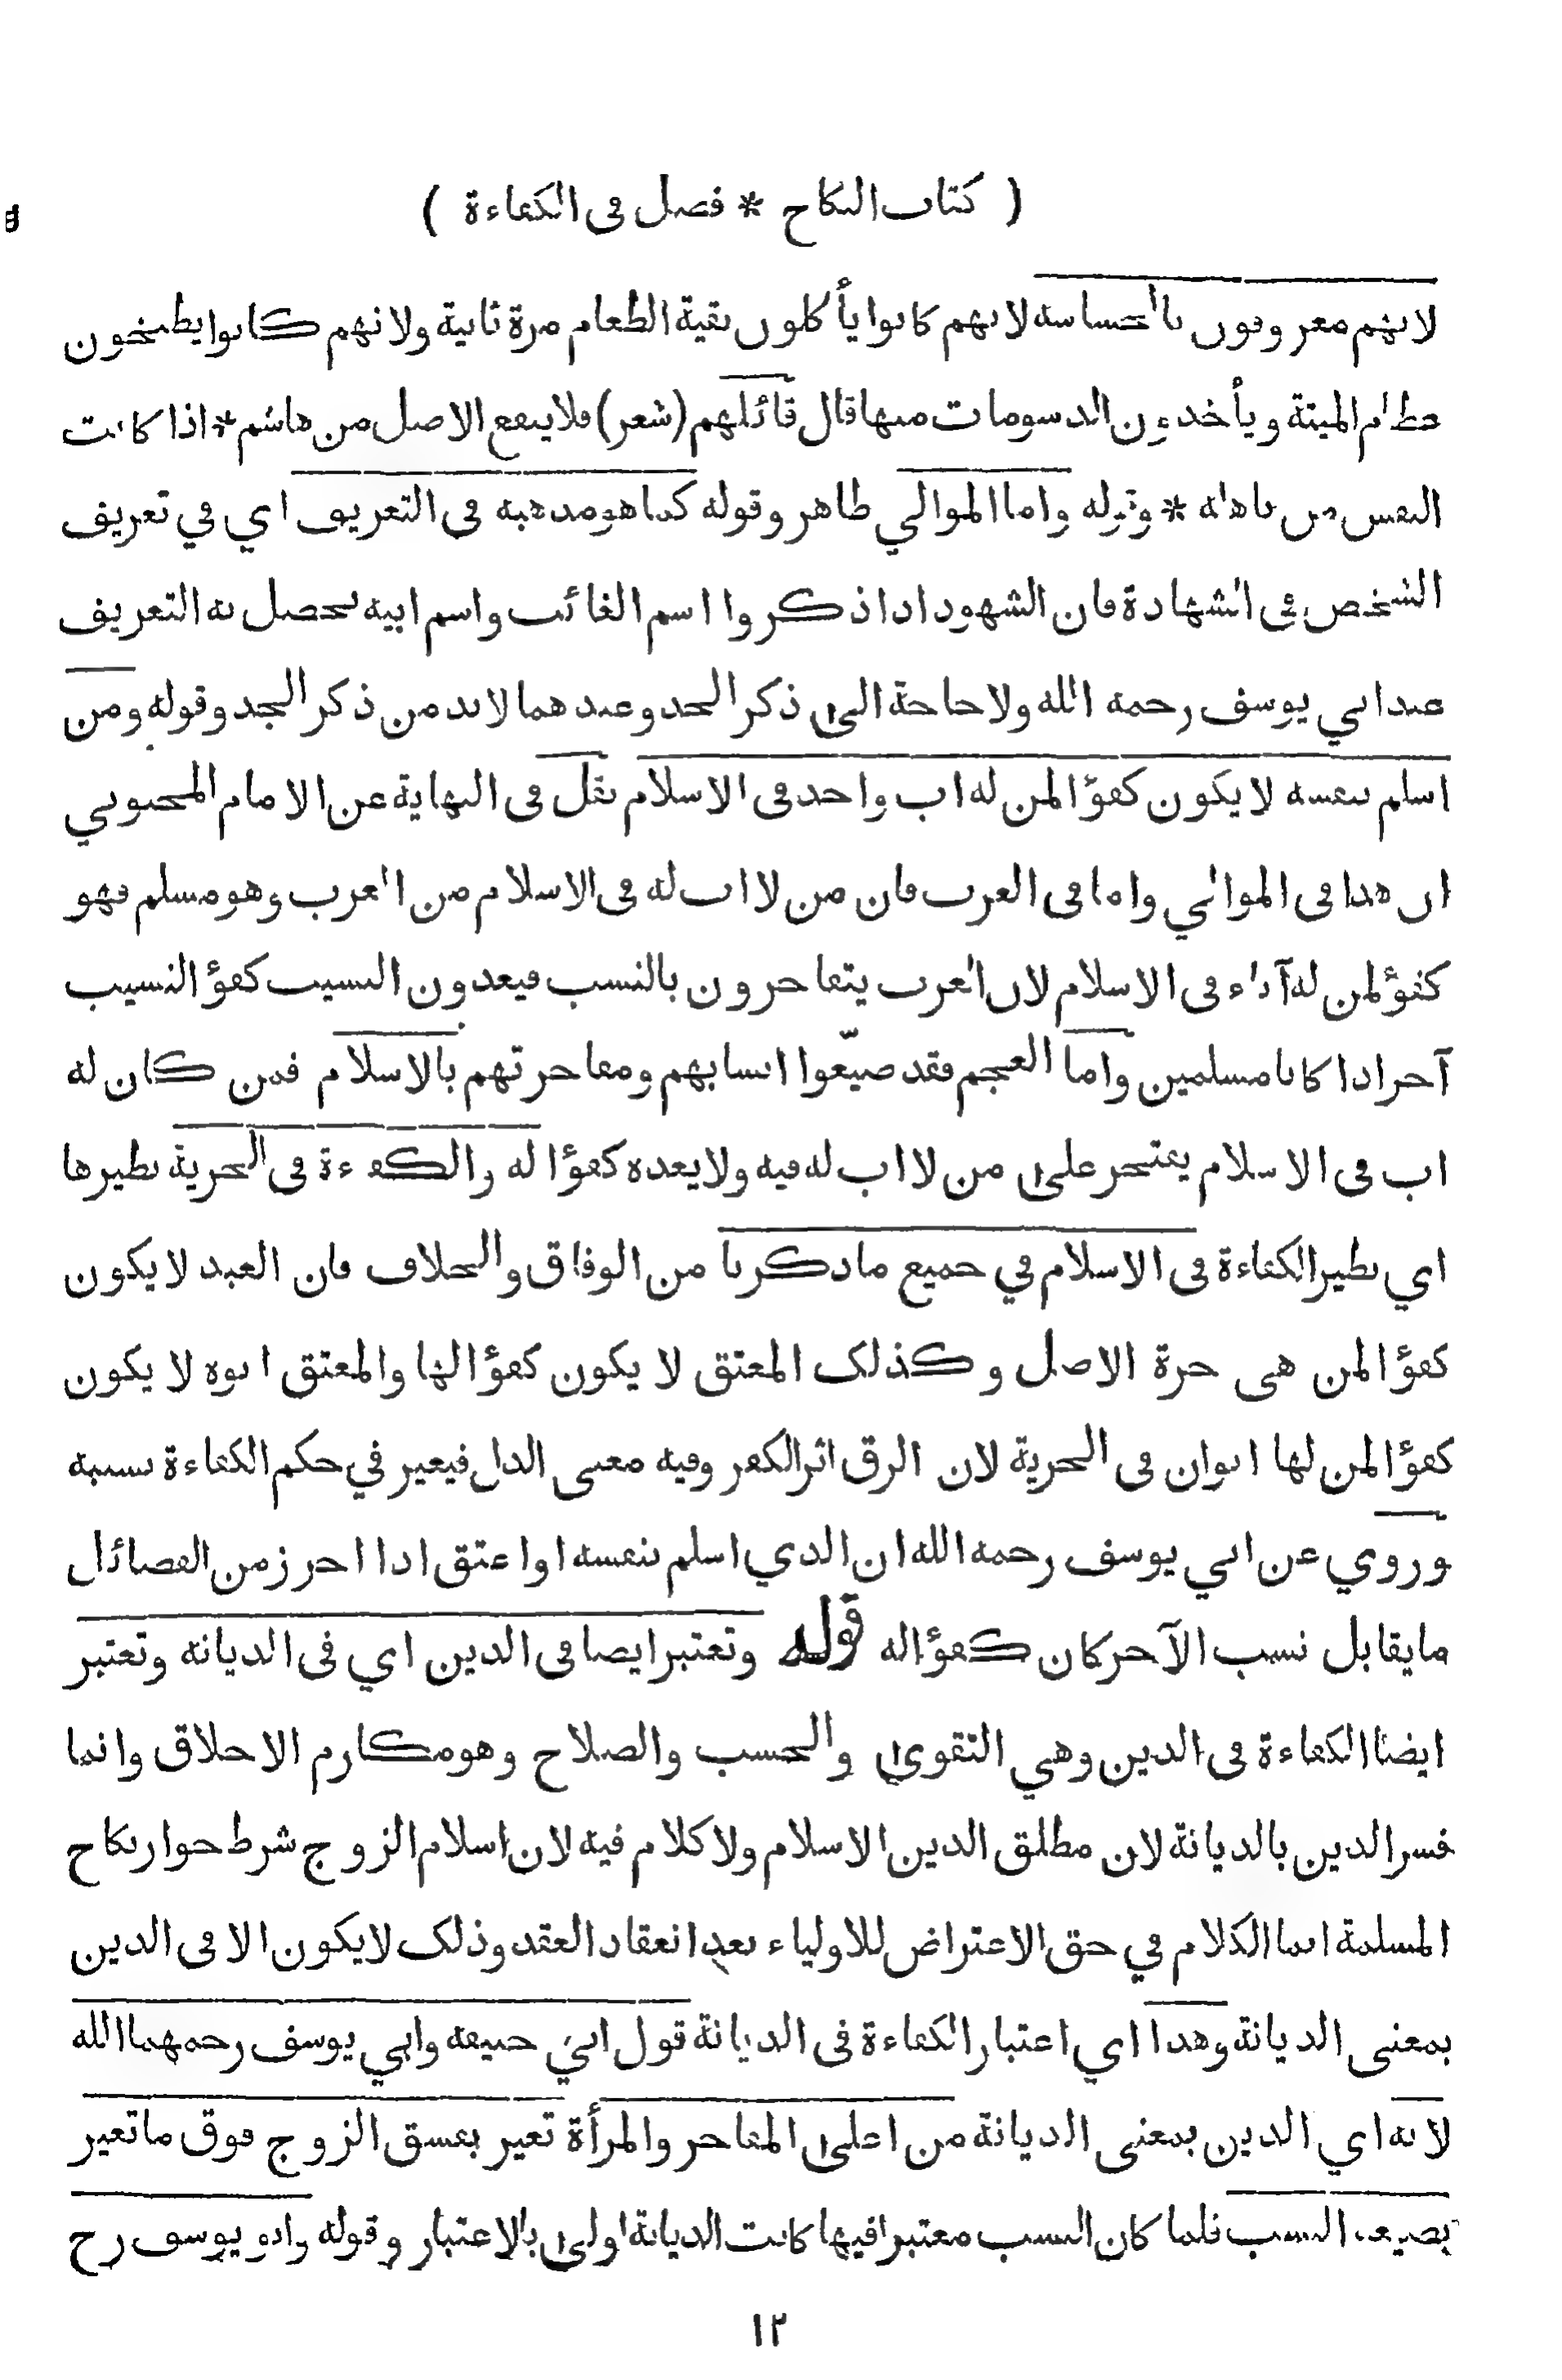 ( كتاب النكاح * فصل فى الكفاءة )
لانهم معروفون بالخساسة لانهم كانوا يأكلون بقية الطعام مرة ثانية ولانهم كانوا يطبخون
عظام الميتة ويأخذون الدسومات منها قال قائلهم (شعر) فلا ينفع الاصل من هاشم * اذا كانت
النفس من باهله * وقوله واما الموالي ظاهر وقوله كما هو مذهبه فى التعريف اي في تعريف
الشخص فى الشهادة فان الشهود اذا ذكروا اسم الغائب واسم ابيه يحصل به التعريف
عند ابي يوسف رحمه الله ولا حاجة الى ذكر الجد وعندهما لابد من ذكر الجد وقوله ومن
اسلم بنفسه لا يكون كفؤا لمن له اب واحد فى الاسلام نقل فى النهاية عن الامام المحبوبي
ان هذا فى الموالي واما فى العرب فان من لا اب له فى الاسلام من العرب وهو مسلم فهو
كفؤ لمن له آباء فى الاسلام لان العرب يتفاخرون بالنسب فيعدون النسيب كفؤ النسيب
آخر اذا كانا مسلمين واما العجم فقد ضيّعوا انسابهم ومفاخرتهم بالاسلام فمن كان له
اب فى الاسلام يفتخر على من لا اب له فيه ولا يعده كفؤا له والكفاءة فى الحرية نظيرها
اي نظير الكفاءة فى الاسلام في جميع ما ذكرنا من الوفاق والخلاف فان العبد لا يكون
كفؤا لمن هى حرة الاصل وكذلك المعتق لا يكون كفؤا لها والمعتق ابوه لا يكون
كفؤا لمن لها ابوان فى الحرية لان الرق اثر الكفر وفيه معنى الذل فيعير في حكم الكفاءة بسببه
وروي عن ابي يوسف رحمه الله ان الذي اسلم بنفسه او اعتق اذا احرز من الفضائل
ما يقابل نسب الآخر كان كفؤا له قوله وتعتبر ايضا فى الدين اي فى الديانه وتعتبر
ايضا الكفاءة فى الدين وهي التقوى والحسب والصلاح وهو مكارم الاخلاق وانما
فسر الدين بالديانة لان مطلق الدين الاسلام ولا كلام فيه لان اسلام الزوج شرط جواز نكاح
المسلمة انما الكلام في حق الاعتراض للاولياء بعد انعقاد العقد وذلك لا يكون الا فى الدين
بمعنى الديانة وهذا اي اعتبار الكفاءة فى الديانة قول ابي حنيفه وابي يوسف رحمهما الله
لانه اي الدين بمعنى الديانة من اعلى المفاخر والمرأة تعير بفسق الزوج فوق ما تعير
بضيعة النسب فلما كان النسب معتبرا فيها كانت الديانة اولى بالاعتبار وقوله وابو يوسف رح
١٢